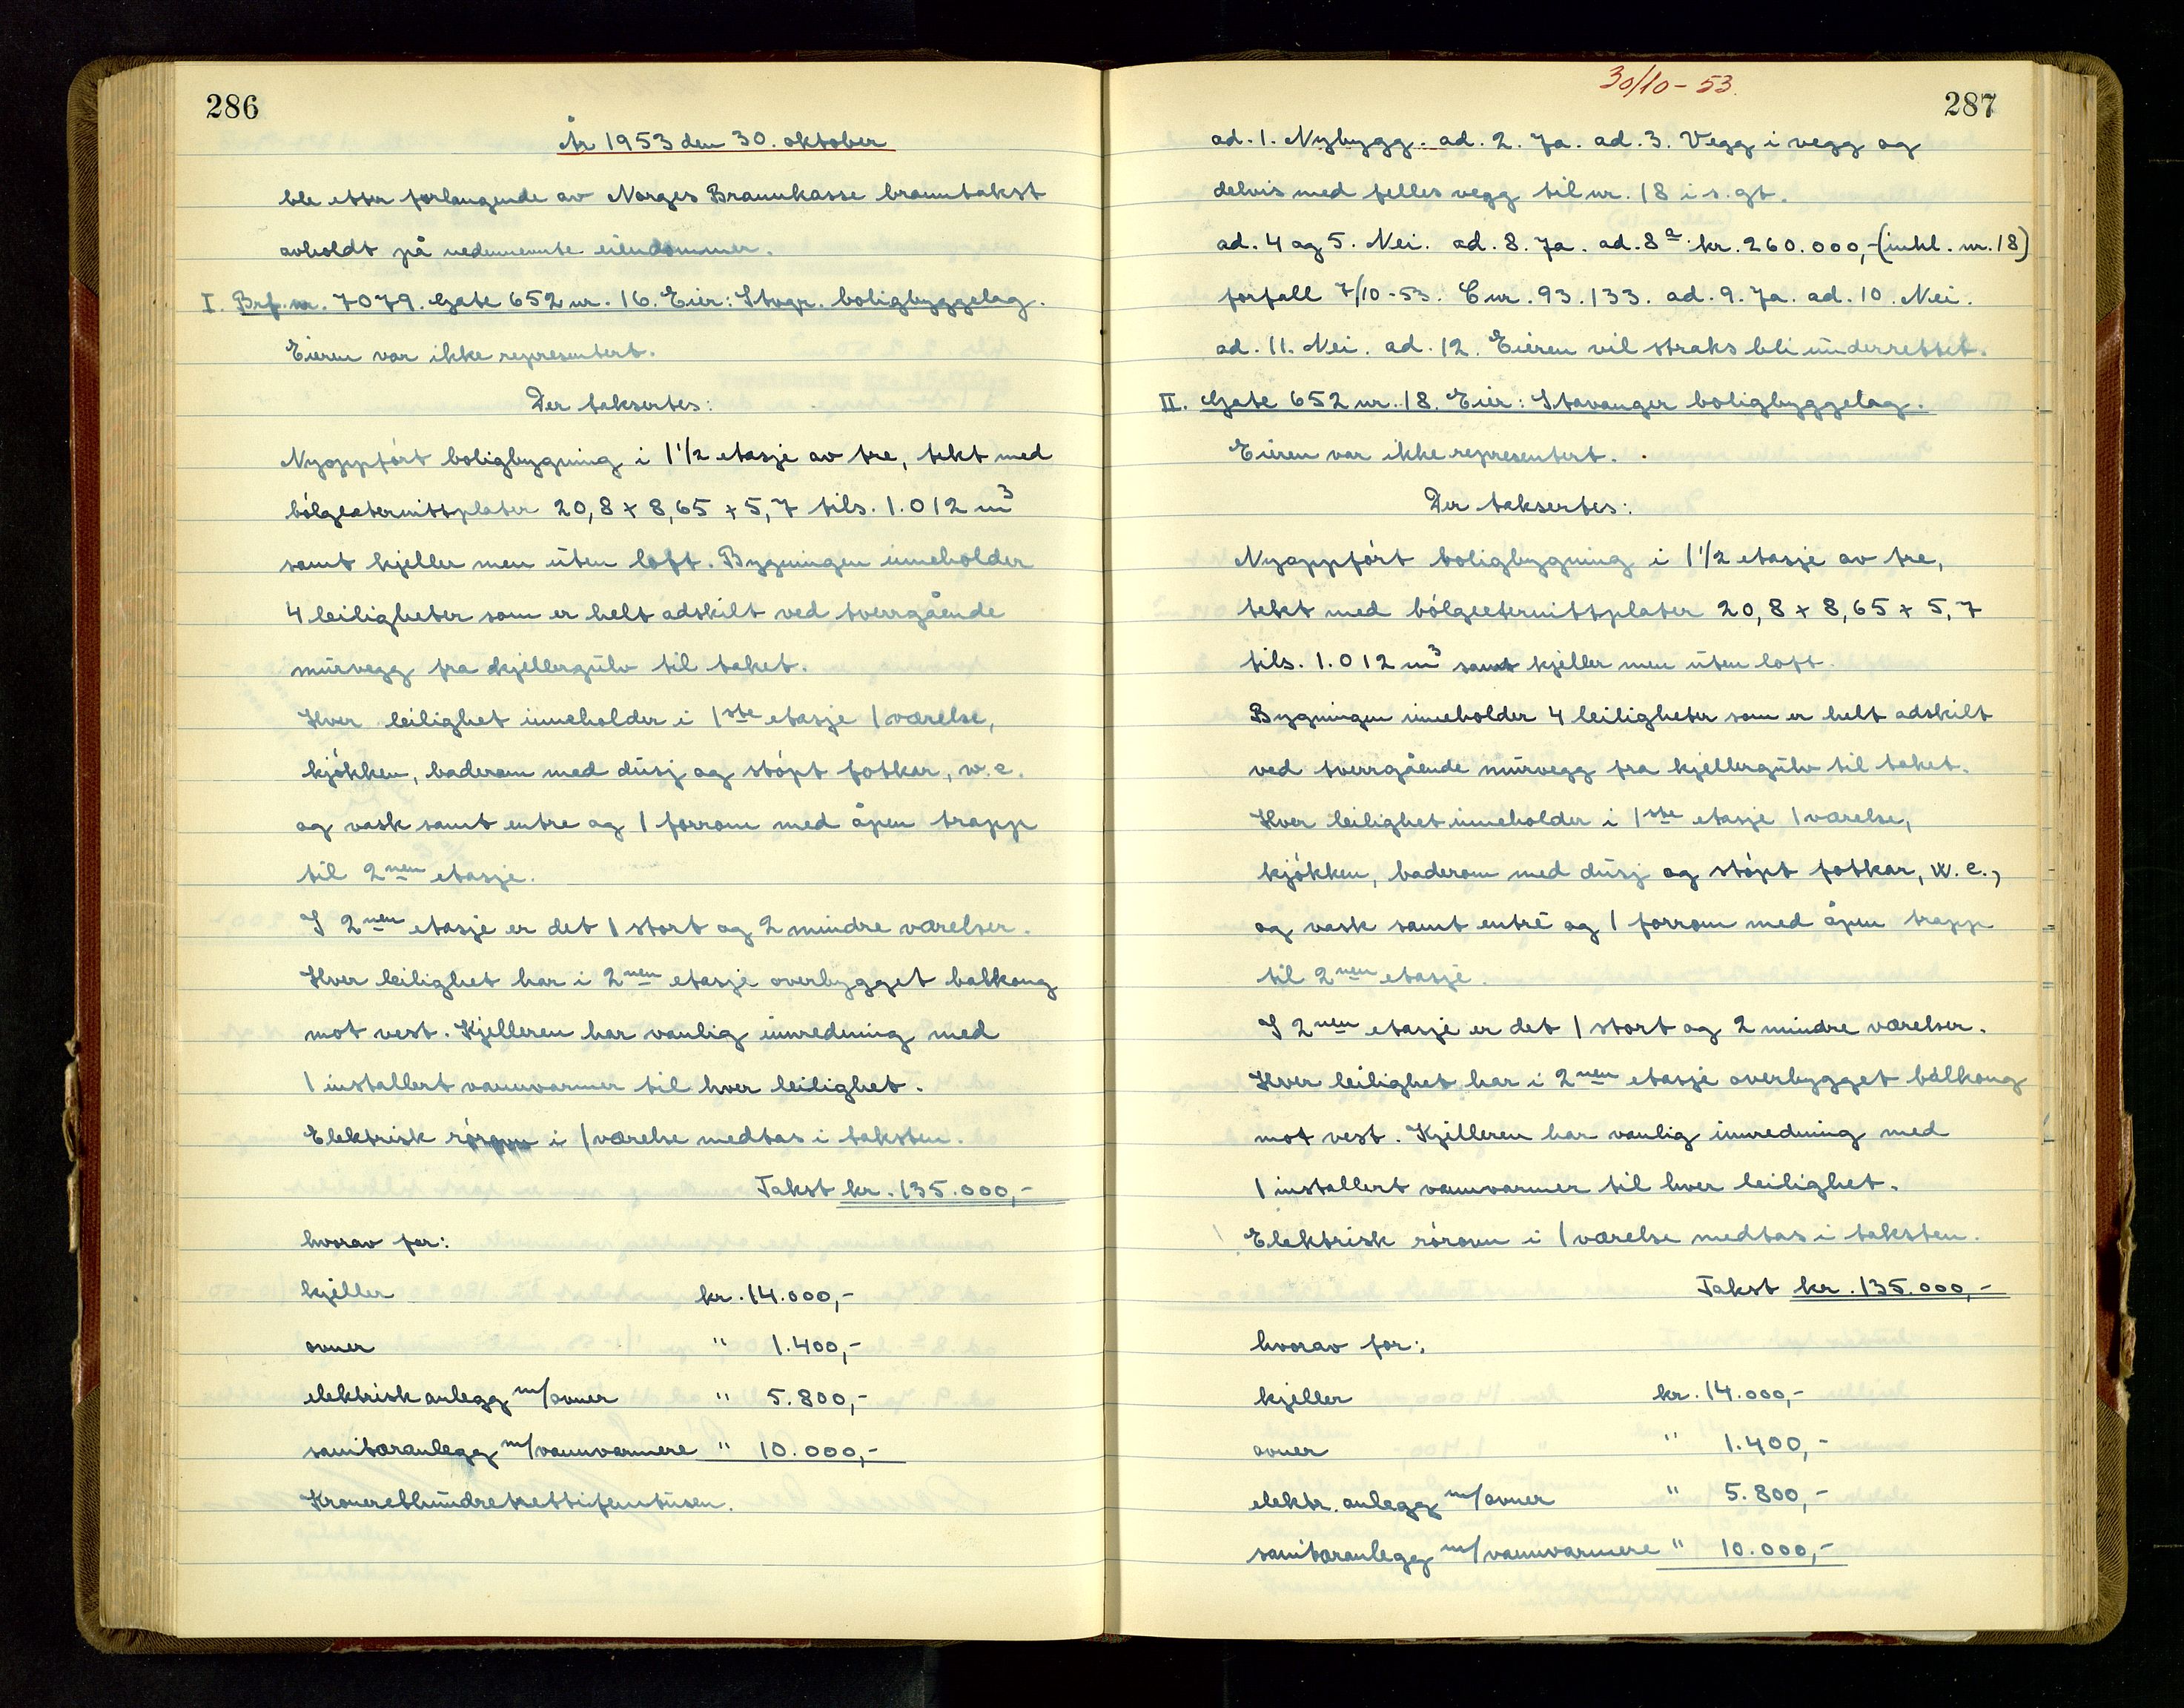 286
År 1953 den 30. oktober
ble etter forlangende av Norges Brannkasse branntakst
avholdt på nedennevnte eiendommer.
I. Brf. nr. 7079. Gate 652 nr. 16. Eier: Stvgr. boligbyggelag.
Eieren var ikke representert.
Der taksertes:
Nyoppført boligbygning i 1 1/2 etasje av tre, tekt med
bølgeeternittplater 20,8 + 8,65 + 5,7 tils. 1.012 m³
samt kjeller men uten loft. Bygningen inneholder
4 leiligheter som er helt adskilt ved tverrgående
murvegg fra kjellergulv til taket.
Hver leilighet inneholder i 1ste etasje 1 værelse,
kjøkken, baderom med dusj og støpt fotkar, w.c.
og vask samt entre og 1 forrom med åpen trapp
til 2nen etasje.
I 2nen etasje er det 1 stort og 2 mindre værelser.
Hver leilighet har i 2nen etasje overbygget balkong
mot vest. Kjelleren har vanlig innredning med
1 installert vannvarmer til hver leilighet.
Elektrisk rørovn i 1 værelse medtas i taksten.
Takst kr. 135.000,-
hvorav for:
kjeller kr. 14.000,-
ovner " 1.400,-
elektrisk anlegg m/ovner " 5.800,-
sanitæranlegg m/vannvarmere " 10.000,-
Kroneretthundretrettifemtusen.
30/10-53.
287
ad. 1. Nybygg. ad. 2. Ja. ad. 3. Vegg i vegg og
delvis med felles vegg til nr. 18 i s. gt.
ad. 4 og 5. Nei. ad. 8. Ja. ad. 8a. kr. 260.000,- (inkl. nr. 18)
forfall 7/10-53. C nr. 93.133. ad. 9. Ja. ad. 10. Nei.
ad. 11. Nei. ad. 12. Eieren vil straks bli underrettet.
II. Gate 652 nr. 18. Eier: Stavanger boligbyggelag.
Eieren var ikke representert.
Der taksertes:
Nyoppført boligbygning i 1 1/2 etasje av tre,
tekt med bølgeeternittplater 20,8 + 8,65 + 5,7
tils. 1.012 m³ samt kjeller men uten loft.
Bygningen inneholder 4 leiligheter som er helt adskilt
ved tverrgående murvegg fra kjellergulv til taket.
Hver leilighet inneholder i 1ste etasje 1 værelse,
kjøkken, baderom med dusj og støpt fotkar, w.c.,
og vask samt entré og 1 forrom med åpen trapp
til 2nen etasje.
I 2nen etasje er det 1 stort og 2 mindre værelser.
Hver leilighet har i 2nen etasje overbygget balkong
mot vest. Kjelleren har vanlig innredning med
1 installert vannvarmer til hver leilighet.
Elektrisk rørovn i 1 værelse medtas i taksten.
Takst kr. 135.000,-
hvorav for:
kjeller kr. 14.000,-
ovner " 1.400,-
elektr. anlegg m/ovner " 5.800,-
sanitæranlegg m/vannvarmere " 10.000,-